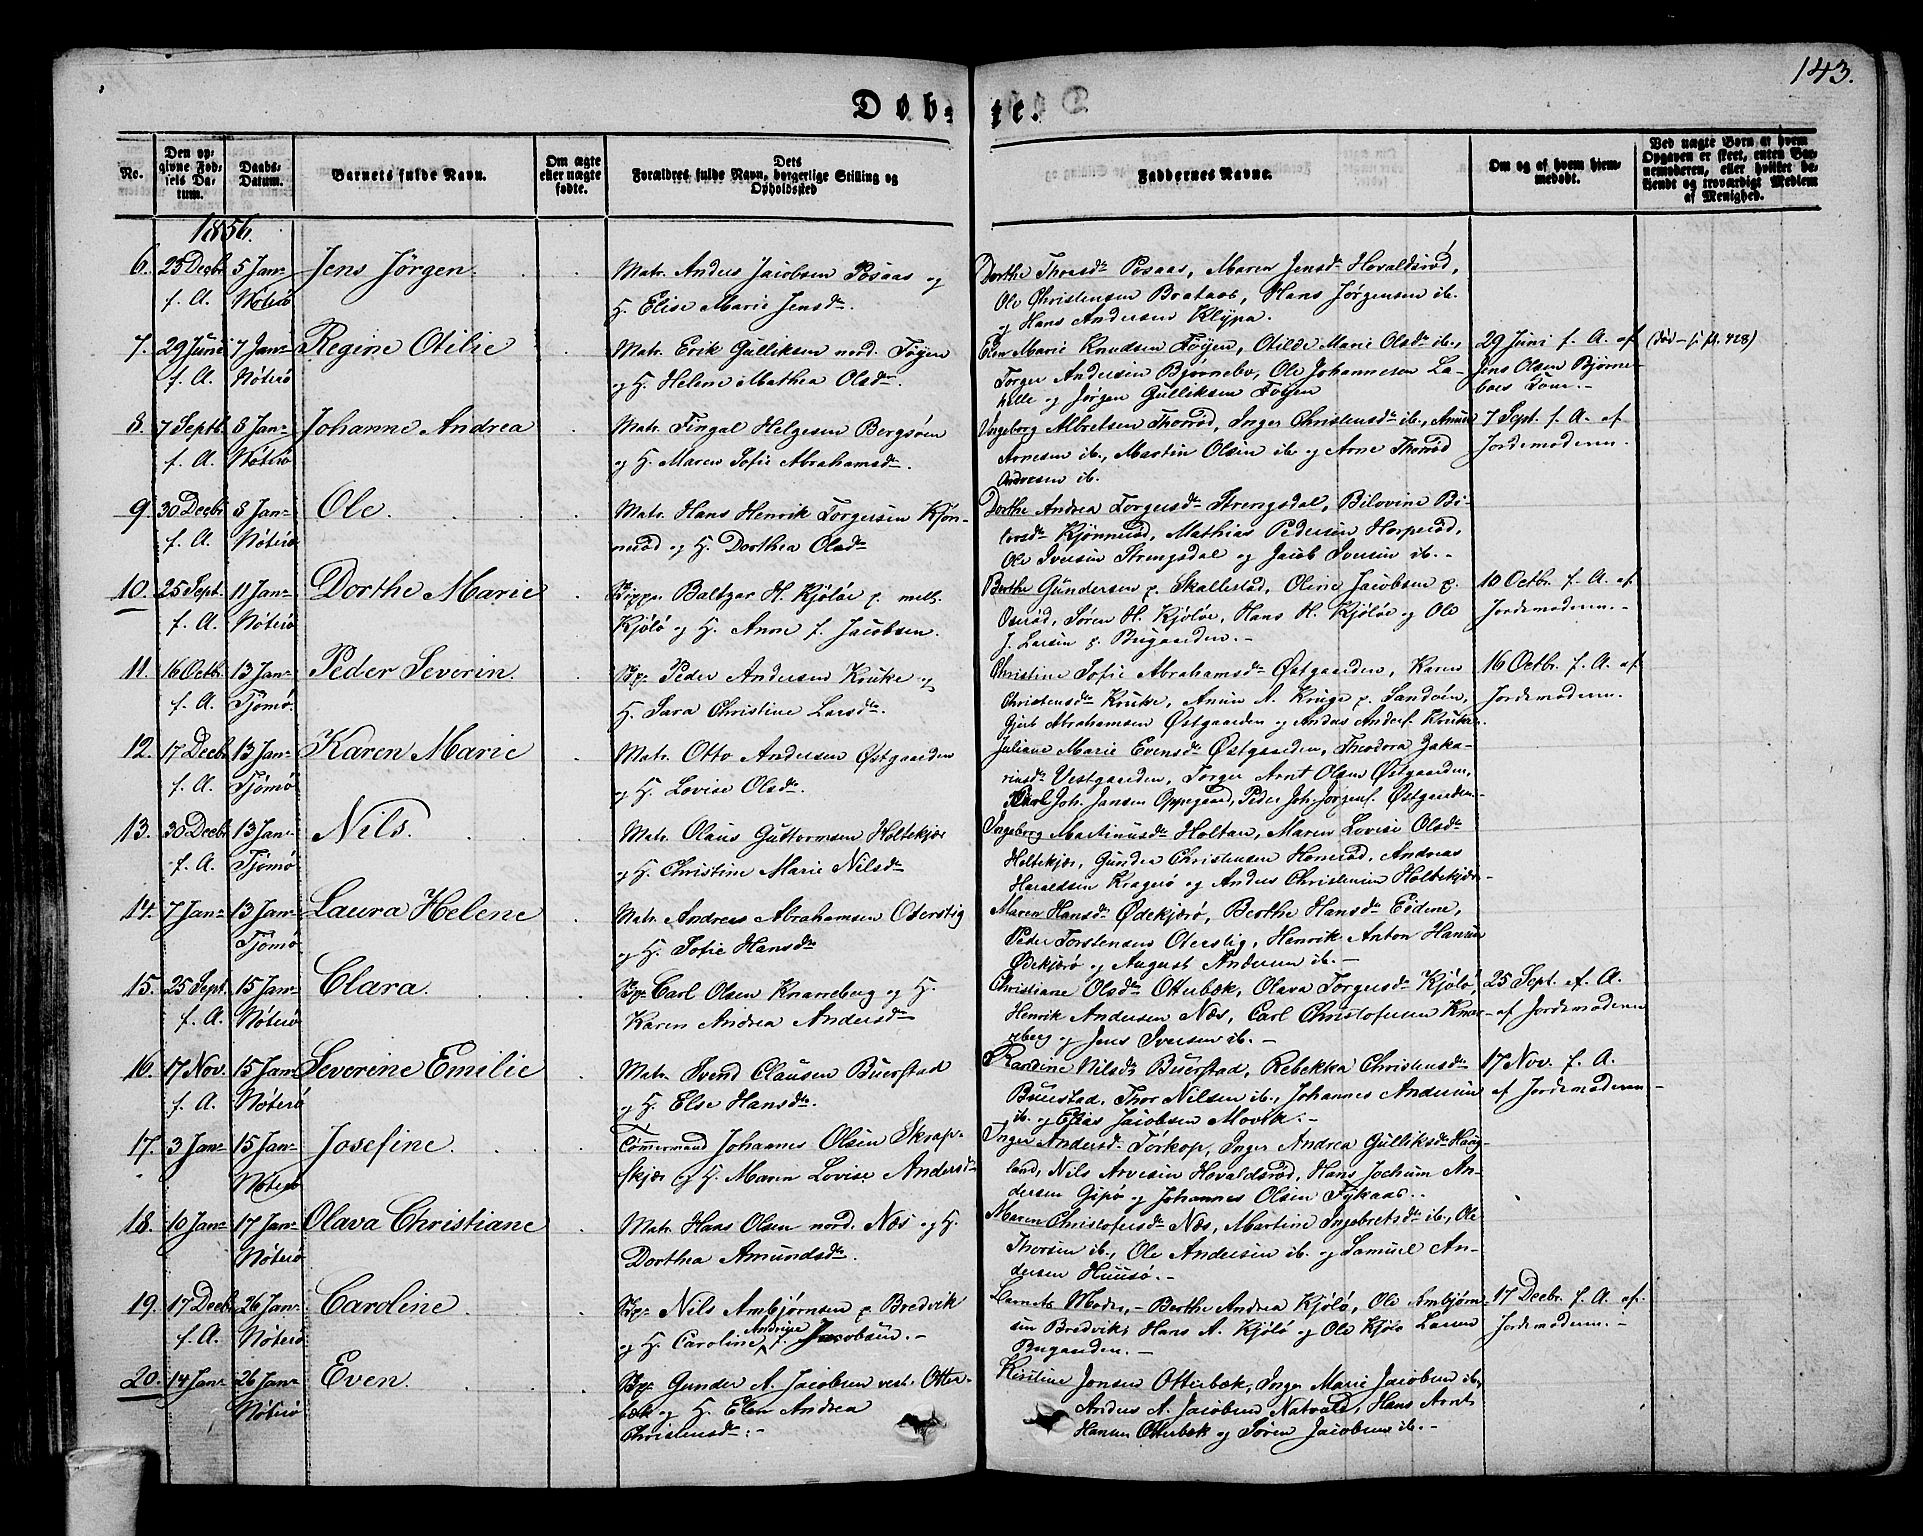 143.
Døbte.
No.
Den opgivne Fødsels Datum.
Daabs-Datum.
Barnets fulde Navn.
Om ægte eller uægte fødte.
Dets Forældres fulde Navn, borgerlige Stilling og Opholdssted
Faddernes Navne.
Om og af hvem hjemmedøbt.
Ved uægte Børn af hvem Opgaven er skeet, enten Barnemoderen, eller hvilket bekiendt og troværdigt Medlem af Menighed.
1856.
6. 25 Decbr. f. A. 5 Jan. Nøterø Jens Jörgen.
Matr. Anders Jacobsen Posaas og
H. Elise Marie Jensdr.
Dorthe Thoresdr. Posaas, Maren Jensd. Hovaldsröd,
Ole Christensen Brataas, Hans Jørgensen ib.
og Hans Andersen Klÿpa.
7. 29 Juni f. A. 7 Jan. Nøterø Regine Otilie
Matr. Erik Gulliksen nord. Føyen
og H. Helene Mathea Olsdr.
Elen Marie Knudsen Føyen, Otilde Marie Olsdr. ib.,
Torger Andersen Bjørnebo, Ole Johannesen La-
helle og Jørgen Gulliksen Føyen
29 Juni f. A. af
Jens Olsen Bjørne-
boes Kone.-
(död - s. fl. 428)
8. 7 Septb. f. A. 8 Jan. Nøterø Johanne Andrea
Matr. Fingal Helgesen Bergsøen
og H. Maren Sofie Abrahamsdr.
Ingeborg Albretsen Thoröd, Inger Christensdr. ib., Amund
Arnesen ib., Martin Olsen ib. og Arne Thoröd
Andresen ib.
7 Sept. f. A. af
Jordemoderen.
9. 30 Decbr. f. A. 8 Jan. Nøterø Ole.
Matr. Hans Henrik Torgersen Kjøn-
neröd og H. Dorthea Olsdr.
Dorthe Andrea Torgersdr. Strengsdal, Bilovine Bi-
lovsdr. Kjönneröd, Mathias Pedersen Horperöd,
Ole Iversen Strengsdal og Jacob Iversen ib. -
10. 25 Sept. f. A. 11 Jan. Nøterø Dorthe Marie
Skipper Baltzar H. Kjölöe p. mell.
Kjölö og H. Anne f. Jacobsen.
Berthe Gundersen p. Skallestad, Oline Jacobsen p.
Oseröd, Søren H. Kjölöe, Hans H. Kjölöe og Ole
J. Larsen p. Bugaarden. -
10 Octbr. f. A. af
Jordemoderen. -
11. 16 Octb. f. A. 13 Jan. Tjømø. Peder Severin.
By. Peder Andersen Kruke og
H. Sara Christine Larsdr.
Christine Sofie Abrahamsdr. Østgaarden, Karen
Christensdr. Kruke, Anun A. Kruge p. Sandöen,
Gjert Abrahamsen Østgaarden og Anders Anders. Kruke.
16 Octbr. f. A. af
Jordemoderen.
12. 17 Decbr. f. A. 13 Jan. Tjømø Karen Marie
Matr. Otto Andersen Østgaarden
og H. Lovise Olsdr.
Juliane Marie Evensdr. Østgaarden, Theodora Zaka-
riasdr. Vestgaarden, Torger Arnt Olsen Østgaarden,
Karl Joh. Jansen Oppegaard, Peder Joh. Jørgens. Østgaarden.
13. 30 Decbr. f. A. 13 Jan. Tjømø Nils.
Matr. Olaus Guttormsen Holtekjær
og H. Christine Marie Nilsdr.
Ingeborg Martinusdr. Holtan, Maren Lovise Olsdr.
Holtekjær, Gunder Christensen Honeröd, Andreas
Haraldsen Krageröe og Anders Christensen Holtekjær.
14. 7 Jan. 13 Jan. Tjømø Laura Helene
Matr. Andreas Abrahamsen Oterstig
og H. Sofie Hansdr.
Maren Hansdr. Ødekjærö, Berthe Hansdr. Eidene,
Peder Torstensen Oterstig, Henrik Anton Hansen
Ødekjærö og August Andersen ib. -
15. 25 Sept. f. A. 15 Jan. Nøterø Clara.
By. Carl Olsen Knarreberg og H.
Karen Andrea Andersdr.
Christiane Olsdr. Otterbæk, Olava Torgersdr. Kjölö,
Henrik Andersen Næs, Carl Christofersen Knar-
reberg og Jens Iversen ib. -
25 Sept. f. A.
af Jordemoderen
16. 17 Nov. f. A. 15 Jan. Nøterø Severine Emilie
Matr. Svend Clausen Buerstad
og H. Else Hansdr.
Randine Nilsdr. Buerstad, Rebekka Christensdr.
Buerstad, Thor Nilsen ib., Johannes Andersen
ib. og Elias Jacobsen Movik. -
17 Nov. f. A.
af Jordemoderen -
17. 3 Jan. 15 Jan. Nøterø Josefine.
Tømmermand Johannes Olsen Skrap-
skjær og H. Maren Lovise Andersdr.
Inger Andersdr. Torkop, Inger Andrea Gulliksdr. Haug-
land, Nils Arvesen Hovaldsröd, Hans Jochum An-
dersen Gipö og Johannes Olsen Fykaas.
18. 10 Jan. 17 Jan. Nøterø Olava Christiane
Matr. Hans Olsen nord. Næs og H.
Dorthea Amundsdr.
Maren Christofersdr. Næs, Martine Ingebretsdr. ib., Ole
Thorsen ib., Ole Andersen ib. og Samuel An-
dersen Huusö. -
19. 17 Decbr. f. A. 26 Jan. Nøterø Caroline
By. Nils Ambjørnsen p. Bredvik
og H. Caroline Andrine f. Jacobsen. -
Barnets Moder, - Berthe Andrea Kjölö, Ole Ambjørn-
sen Bredvik, Hans A. Kjölö og Ole Kjöle Larsen
Bugaarden. -
17 Decbr. f. A. af
Jordemoderen. -
20. 14 Jan. 26 Jan. Nøterø Even.
By. Gunder A. Jacobsen vest. Otter-
bæk og H. Elen Andrea
Christensdr. -
Kirstine Jonsen Otterbæk, Inger Marie Jacobsen ib.,
Anders A. Jacobsen Natvald, Hans Arnt
Hansen Otterbæk og Søren Jacobsen ib. -